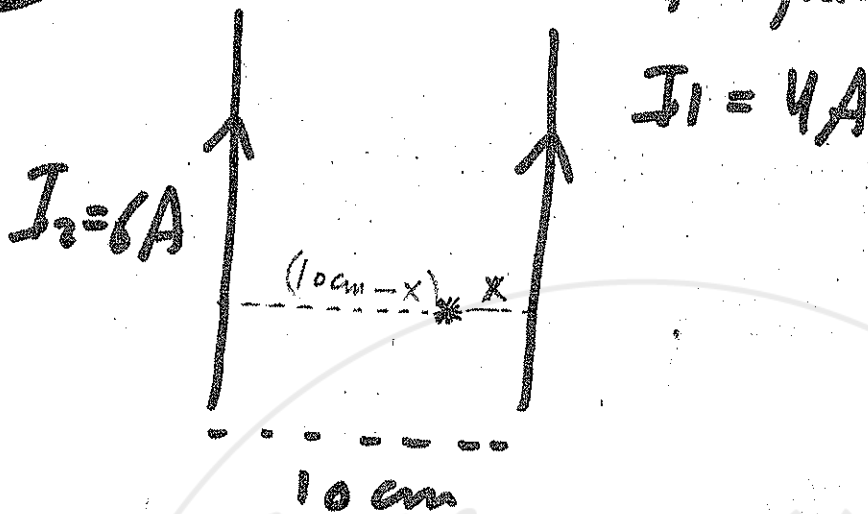 I1 = 4A
I2=6A
(10cm-x) x
10 cm